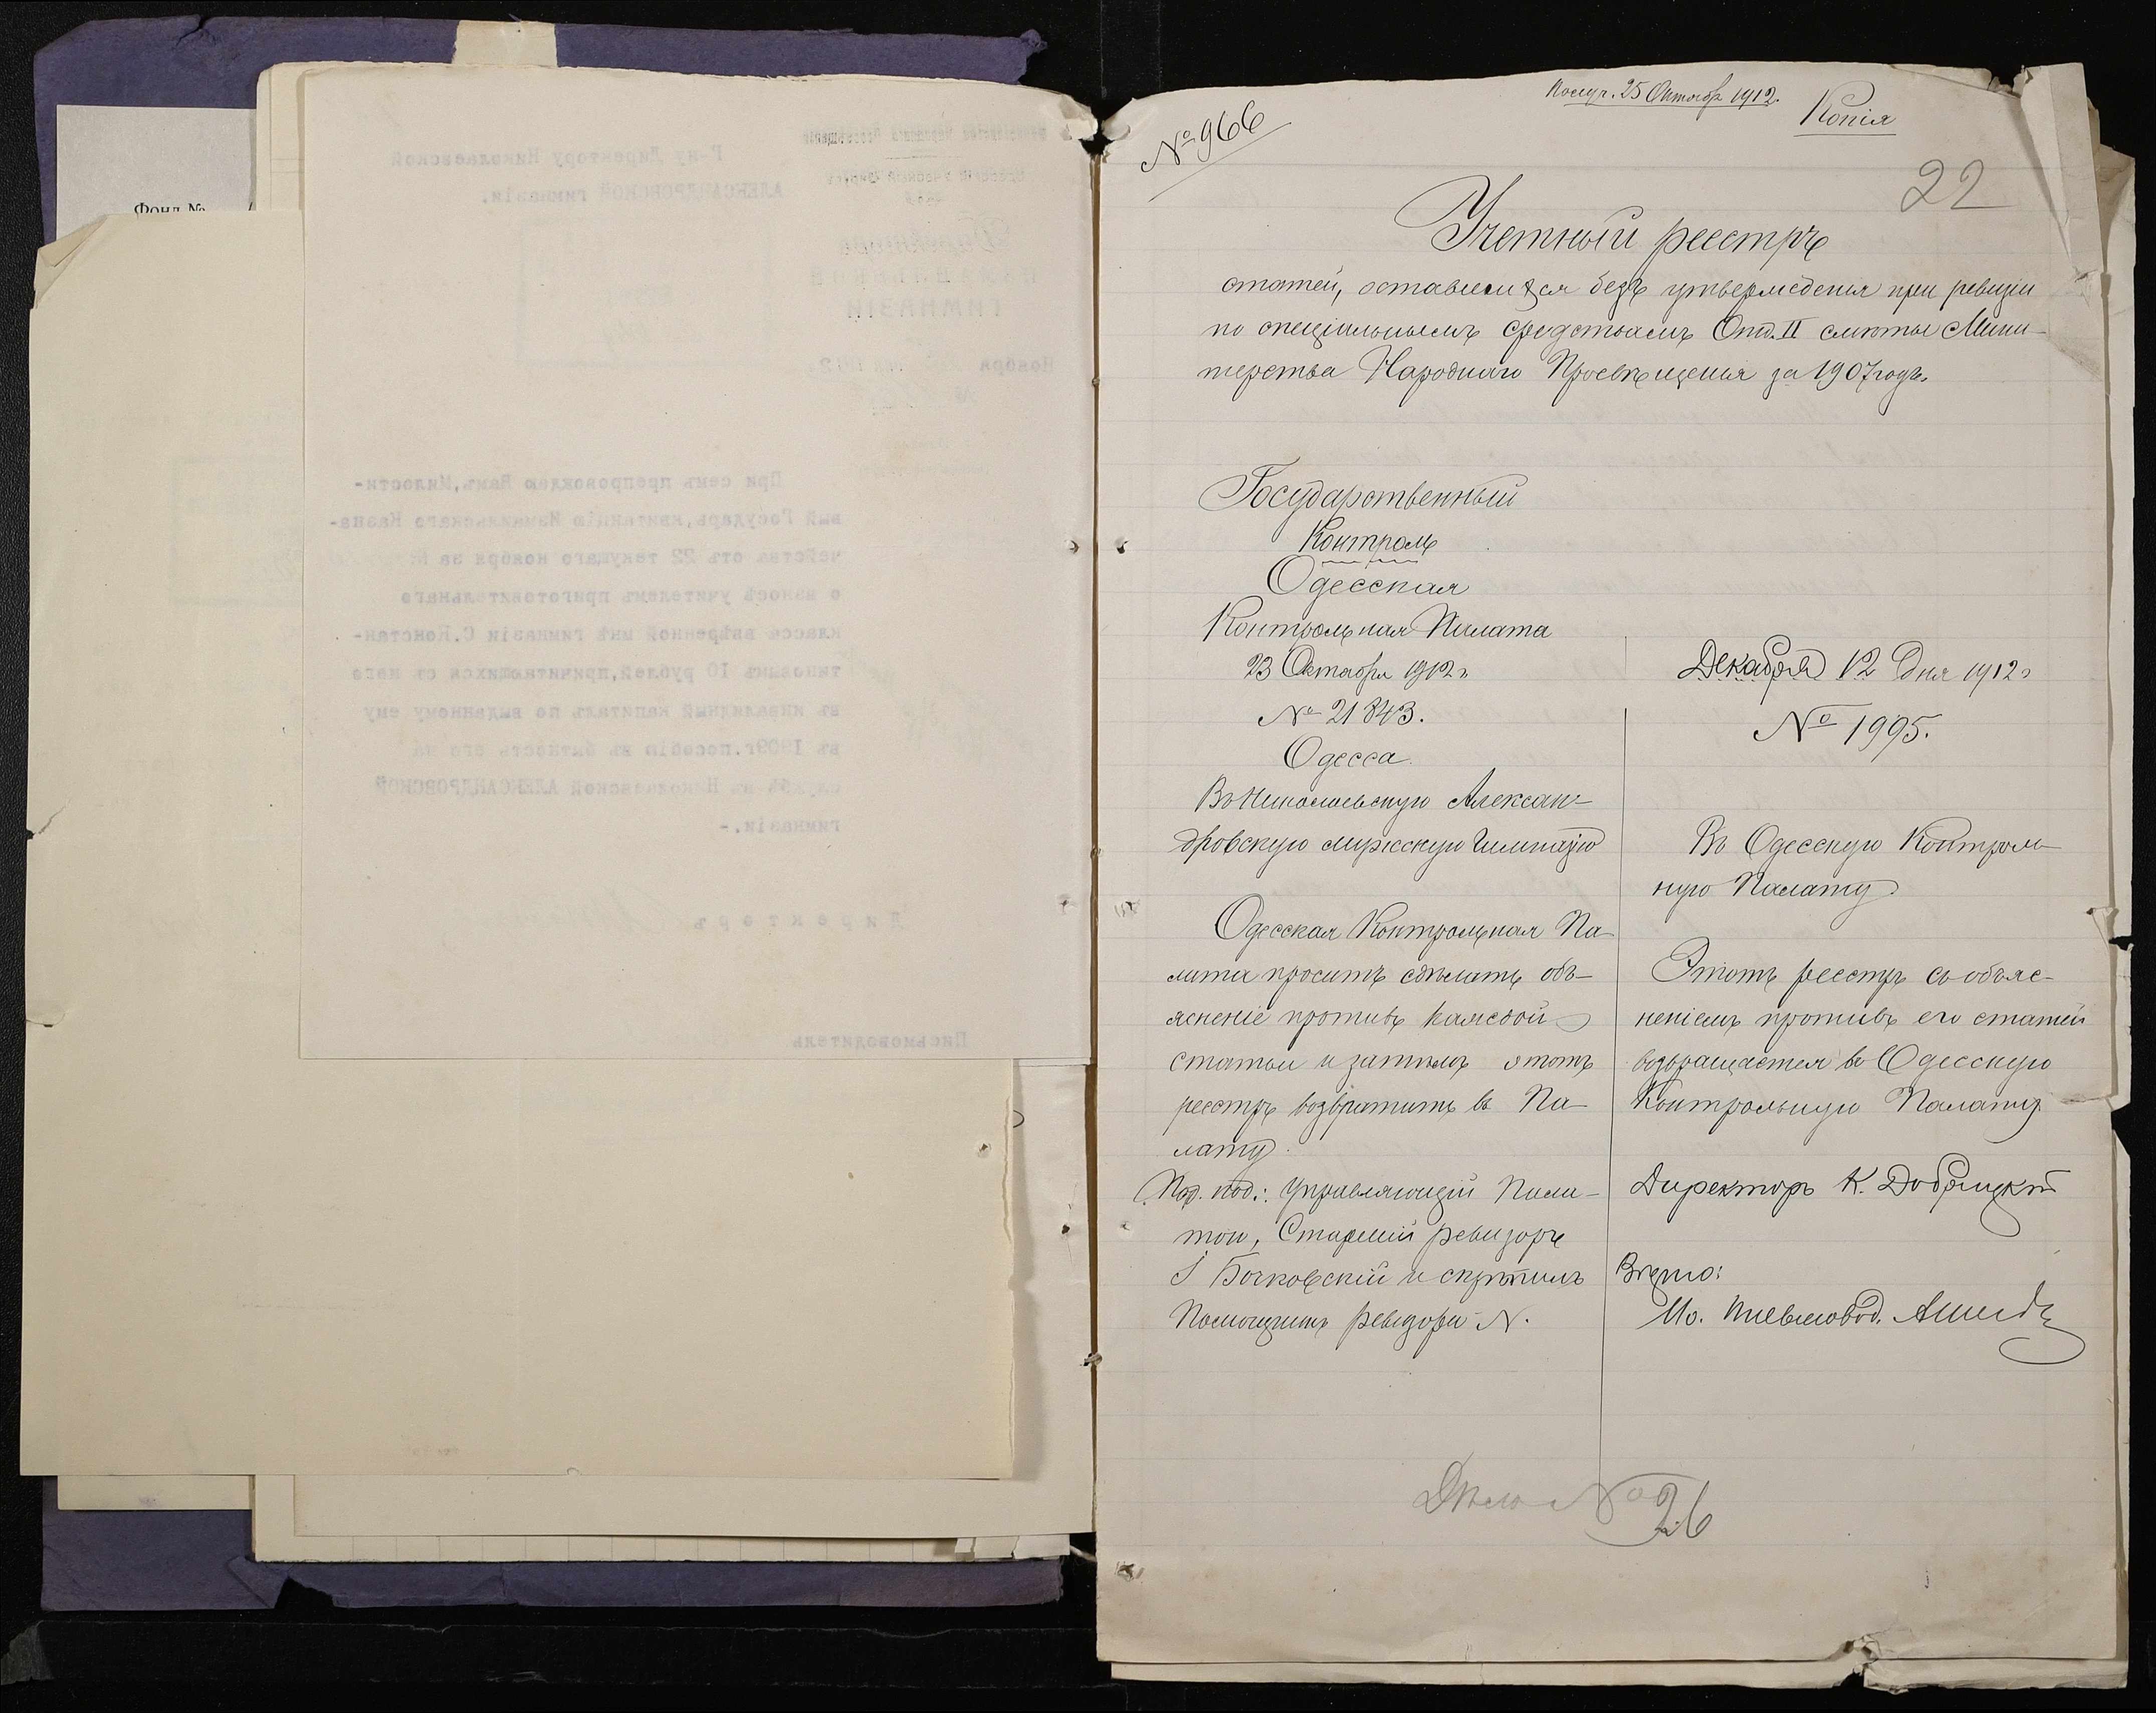 Фонд №
Получ. 25 Октября 1912.
Копія
№ 966
22
Учетный реестръ
статей, оставшихся безъ утвержденія при ревизіи
по спеціальнымъ средствамъ Отд. II смѣты Мини-
терства Народнаго Просвѣщенія за 1907 годъ.
Государственный
Контроль
Одесская
Контрольная Палата
23 Октября 1912 г.
№ 21843.
Одесса
Въ Николаевскую Алексан-
дровскую мужскую Гимназію
Одесская Контрольная Па-
лата проситъ сдѣлать объ-
ясненіе противъ каждой
статьи и затѣмъ этотъ
реестръ возвратить въ Па-
лату.
Под. под.: Управляющій Пала-
той, Старшій ревизоръ
І Бочковскій и скрѣпилъ
Помощникъ ревизора N.
Декабря 12 дня 1912 г.
№ 1995.
Въ Одесскую Контроль-
ную Палату
Этотъ реестръ съ объяс-
неніемъ противъ его статей
возвращается въ Одесскую
Контрольную Палату
Директоръ К. Добрицкій
Вѣрно:
Ио. Письмовод.
Дѣло № 26
Г-ну Директору Николаевской
АЛЕКСАНДРОВСКОЙ гимназіи.
ГИМНАЗІИ
Ноября
При семъ препровождаю Вамъ, Милости-
вый Государь, квитанцію Измаильскаго Казна-
чейства отъ 22 текущаго ноября за №
о взносѣ учителемъ приготовительнаго
класса ввѣренной мнѣ гимназіи С. Констан-
тиновымъ 10 рублей, причитающихся съ него
въ инвалидный капиталъ по выданному ему
въ 1909 г. пособію въ бытность его на
службѣ въ Николаевской АЛЕКСАНДРОВСКОЙ
гимназіи.-
Директоръ
Письмоводитель